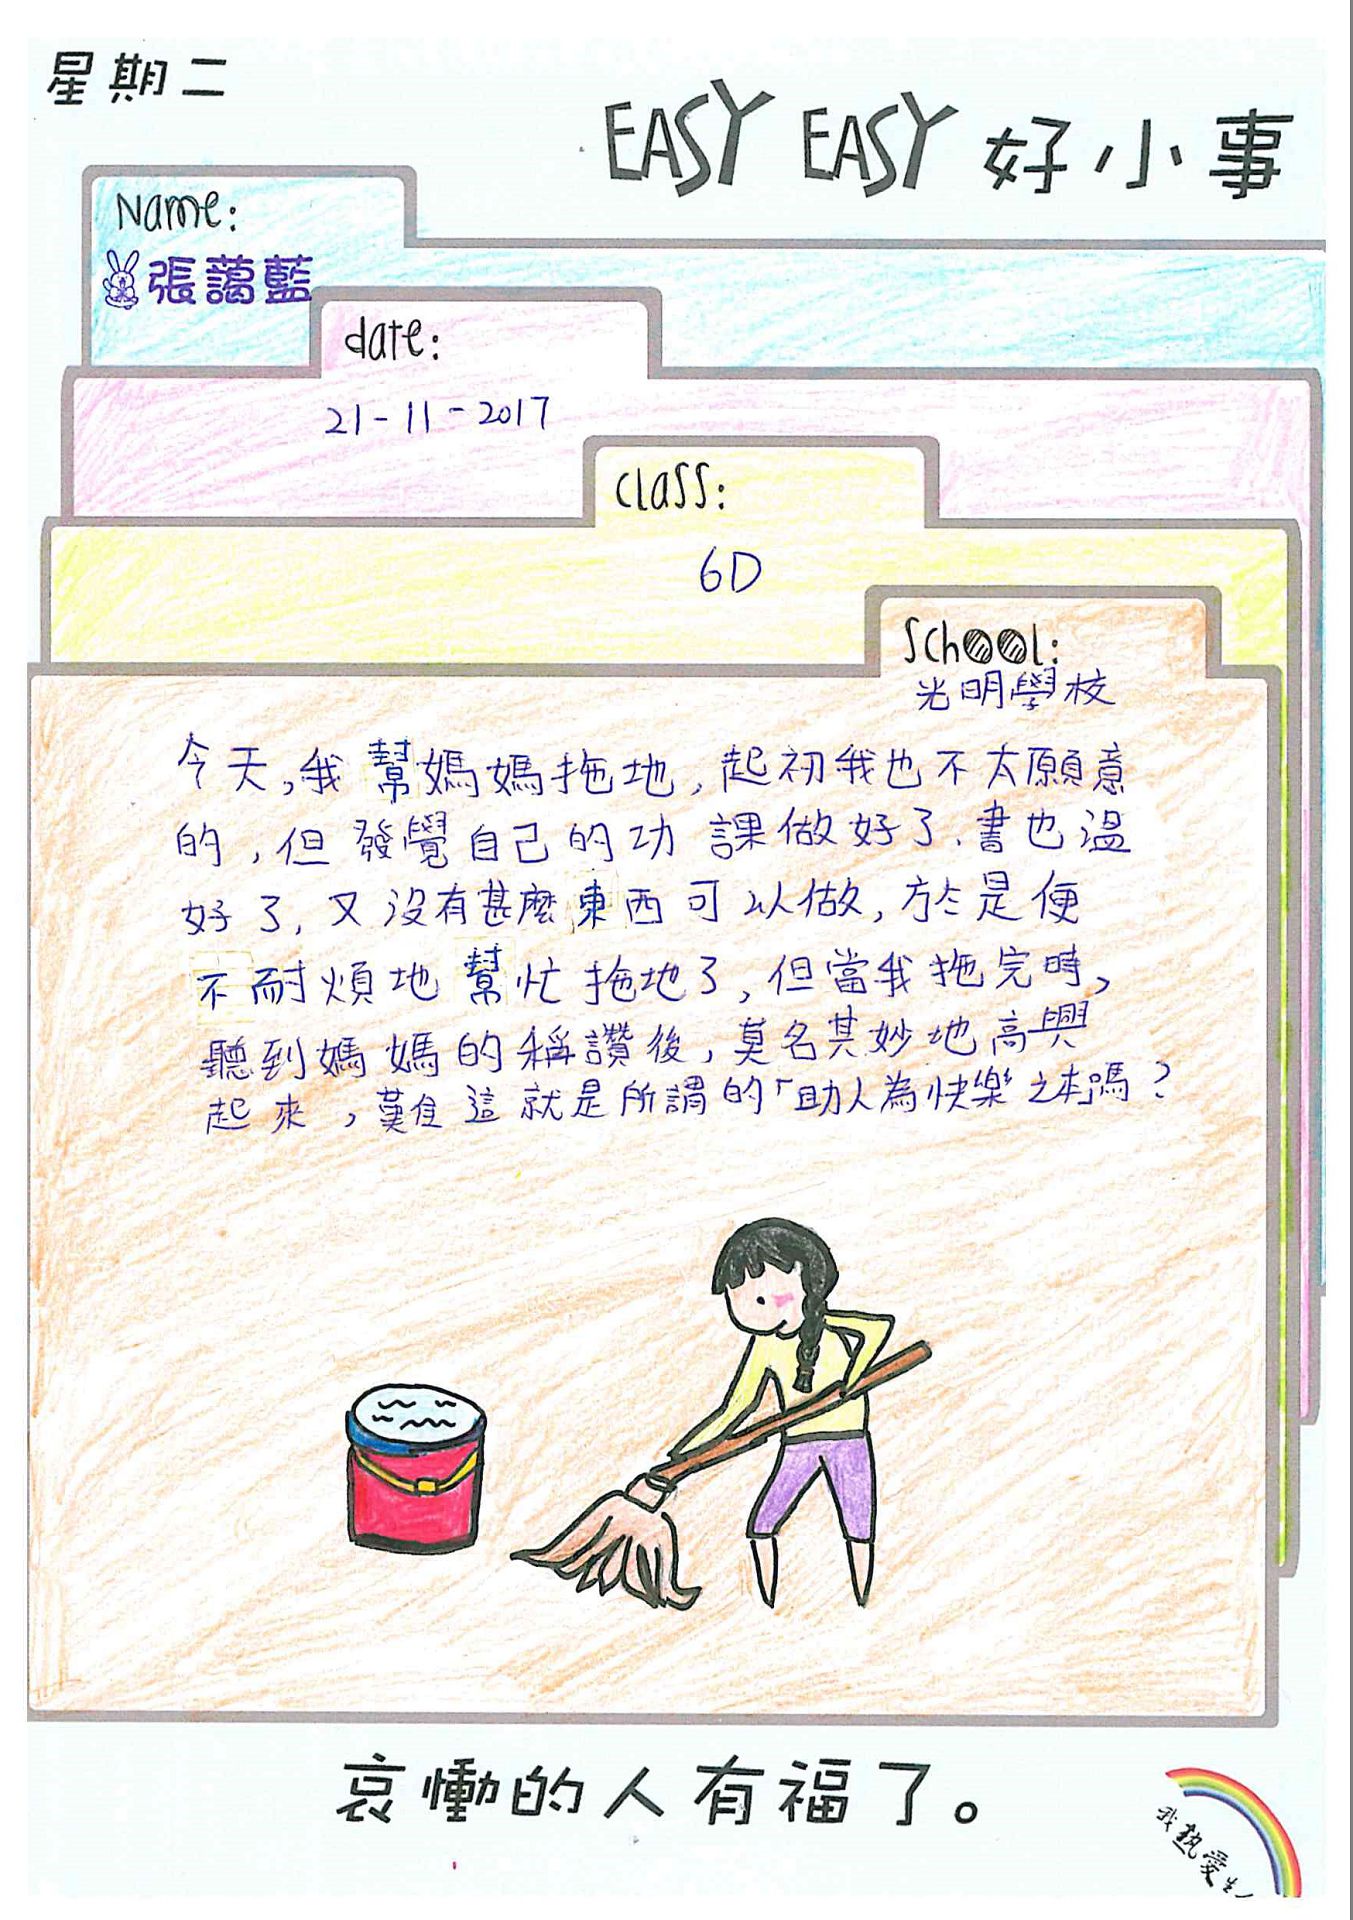 星期二
EASY EASY 好小事
Name:
張藹藍
date:
21-11-2017
class:
6D
School:
光明學校
今天,我幫媽媽拖地,起初我也不太願意
的,但發覺自己的功課做好了,書也溫
好了,又沒有甚麼東西可以做,於是便
不耐煩地幫忙拖地了,但當我拖完時,
聽到媽媽的稱讚後,莫名其妙地高興
起來,難道這就是所謂的「助人為快樂之本嗎?
哀慟的人有福了。
我熱愛生